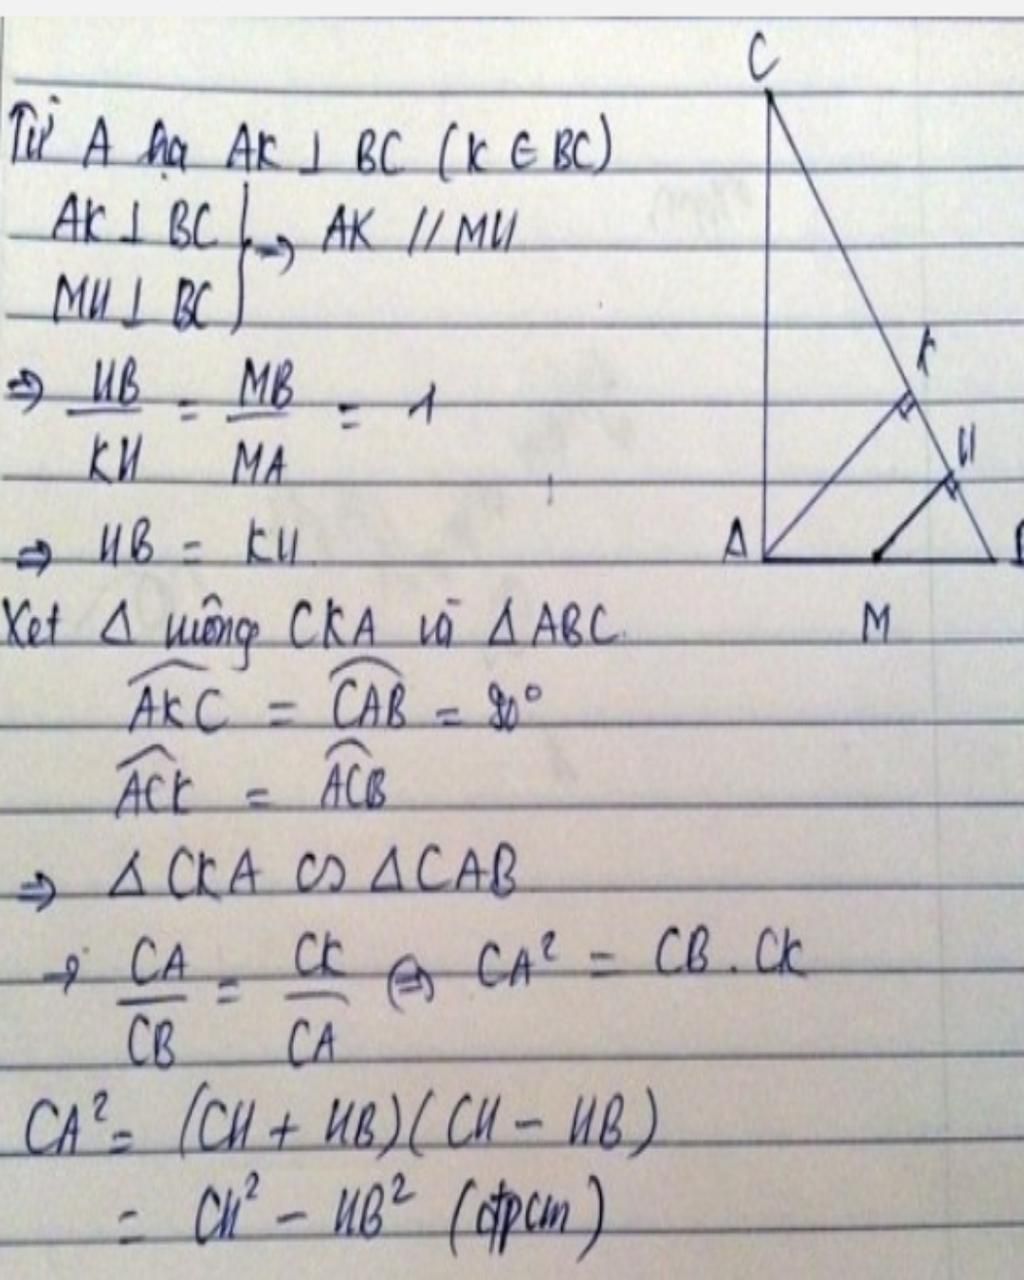 C
Từ A hạ AK ⊥ BC (K ∈ BC)
AK ⊥ BC
MH ⊥ BC } → AK // MH
K
⇒ HB/KH = MB/MA = 1
H
⇒ HB = KH
A
M
Xet Δ vuông CKA và ΔABC
AKC = CAB = 90°
ACK = ACB
⇒ Δ CKA ∽ ΔCAB
→ CA/CB = CK/CA ⇔ CA² = CB . CK
CA² = (CH + HB)(CH - HB)
= CH² - HB² (đpcm)